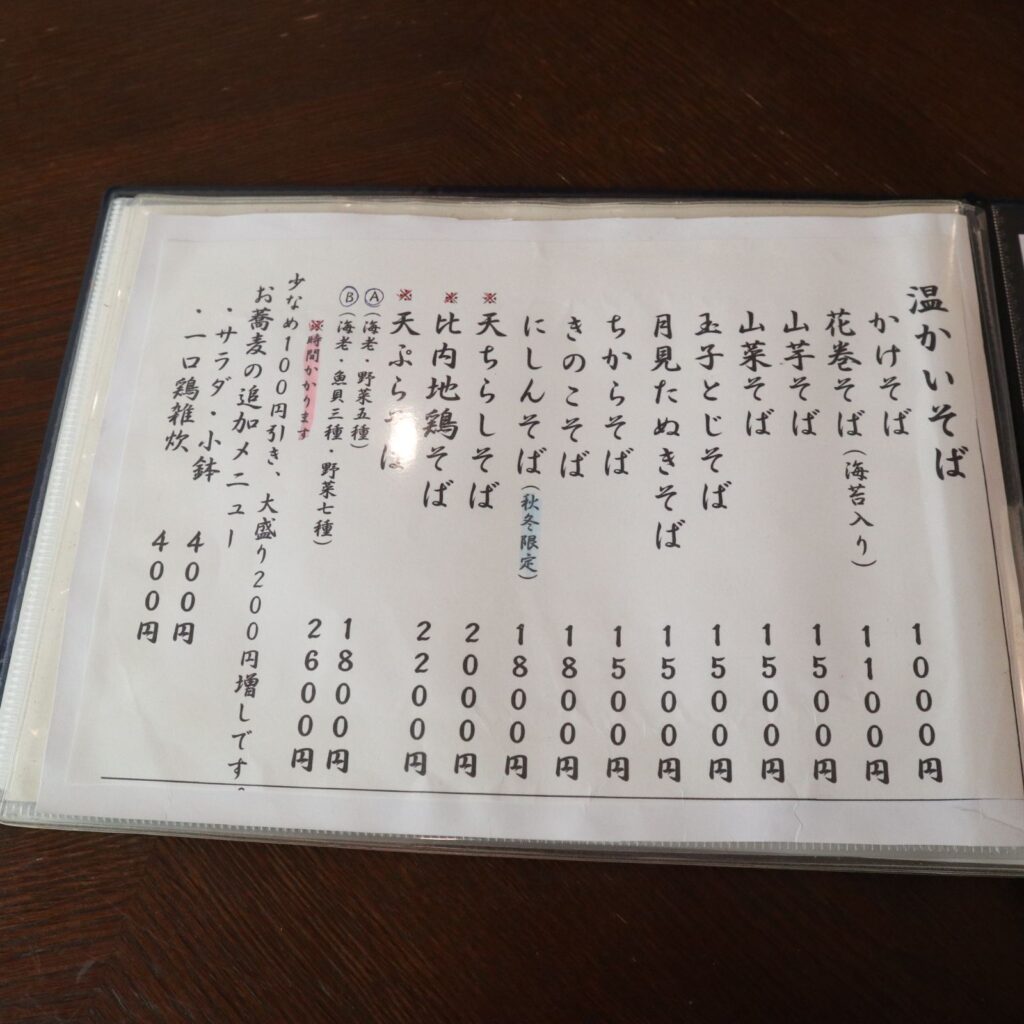 温かいそば
かけそば 1000円
花巻そば（海苔入り） 1100円
山芋そば 1500円
山菜そば 1500円
玉子とじそば 1500円
月見たぬきそば 1500円
ちからそば 1500円
きのこそば 1800円
にしんそば（秋冬限定） 1800円
※天ちらしそば 2000円
※比内地鶏そば 2200円
※天ぷらそば
Ⓐ（海老・野菜五種） 1800円
Ⓑ（海老・魚貝三種・野菜七種） 2600円
※時間かかります
少なめ100円引き、大盛り200円増しです。
お蕎麦の追加メニュー
・サラダ・小鉢 400円
・一口鶏雑炊 400円